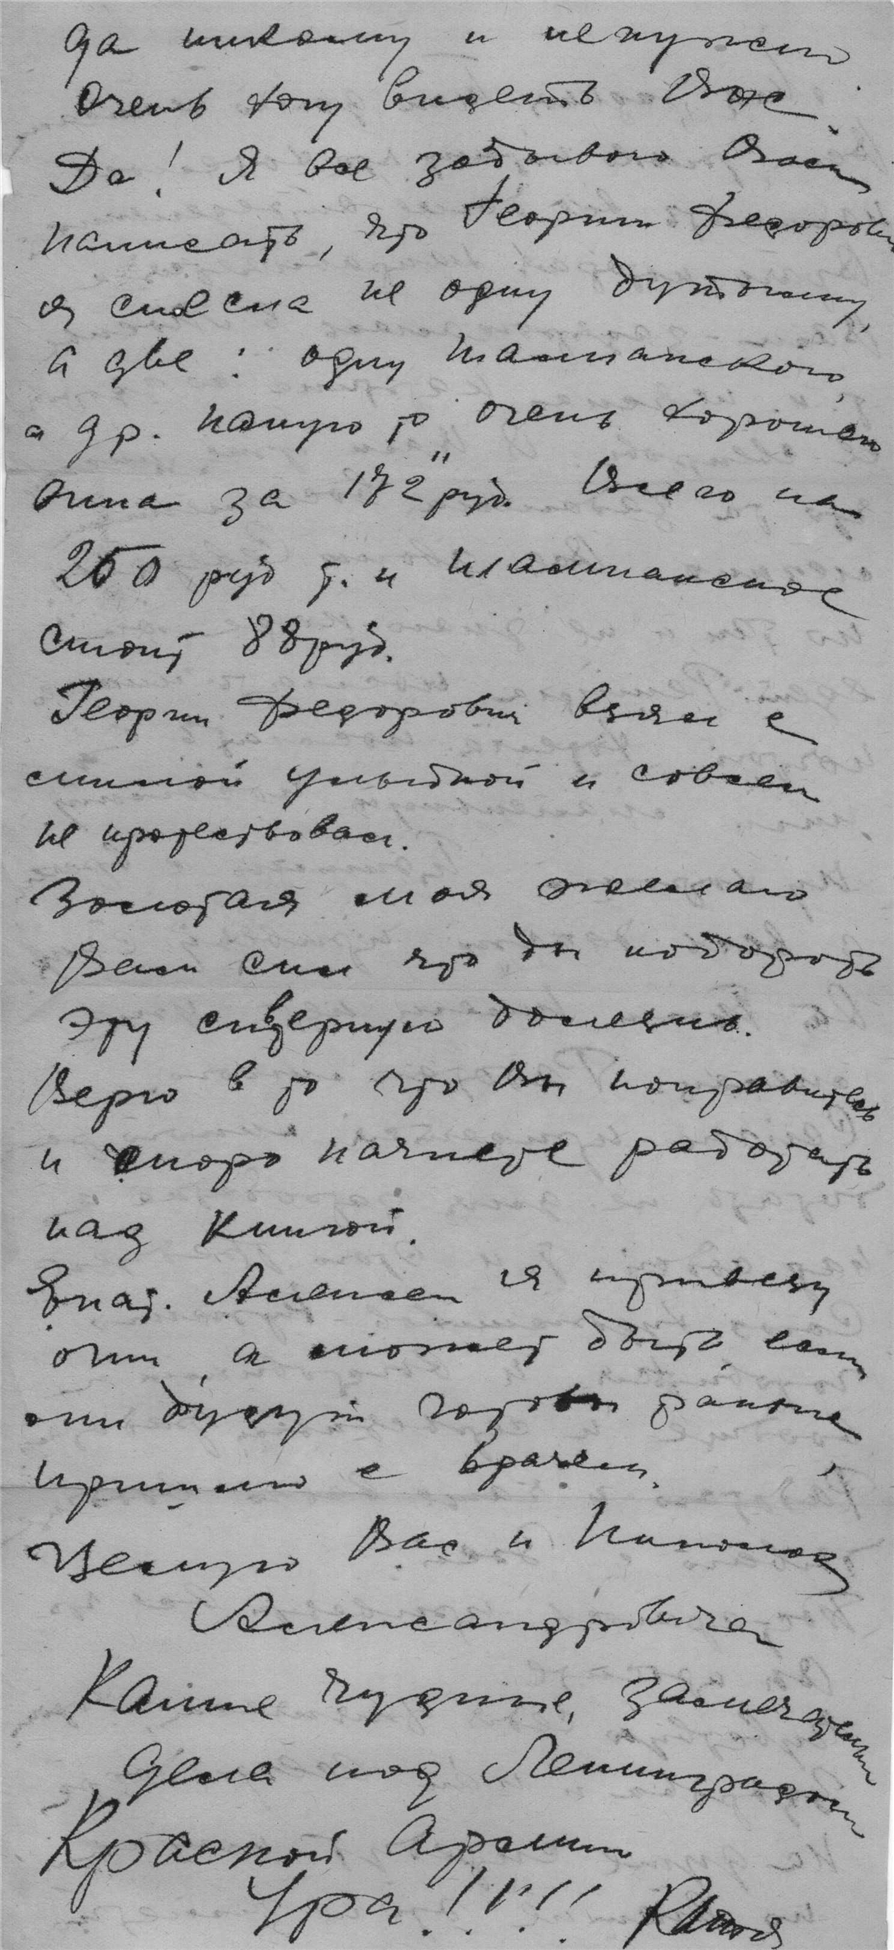 да никому и не нужно
Очень хочу видеть Вас.
Да! Я все забываю Вам
написать, что Георгию Федоровичу
я снесла не одну бутылку,
а две: одну шампанского,
а др. какую то очень хорошего
вина за 172 руб. Всего на
260 руб т. и шампанское
стоит 88 руб.
Георгий Федорович взял с
милой улыбкой и совсем
не протествовал.
Золотая моя желаю
Вам сил что бы побороть
эту скверную болезнь.
Верю в то что Вы поправитесь
и скоро начнете работать
над книгой.
Екат. Алексеи я привезу
очки, а может быть, если
они будут готовы раньше,
пришлю с врачем.
Целую Вас и Николая
Александровича
Какие чудные, замечательные
дела под Ленинградом
Красной Армии
Ура!!!!